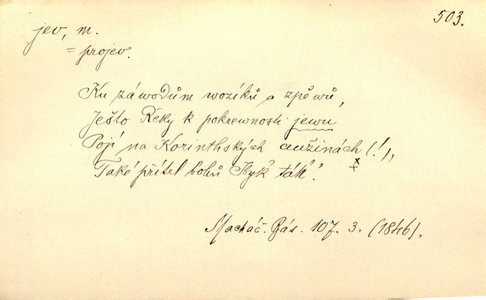 503.
jev, m.
= projev.
Ku záwodům wozíků a zpěwů,
Ješto Řeky k pokrewnosti jewu
Pojí na Korinthských aužinách (!),
x
+
Také přítel bohů Ityk' táh'.
Macháč. Bás. 107. 3. (1846).